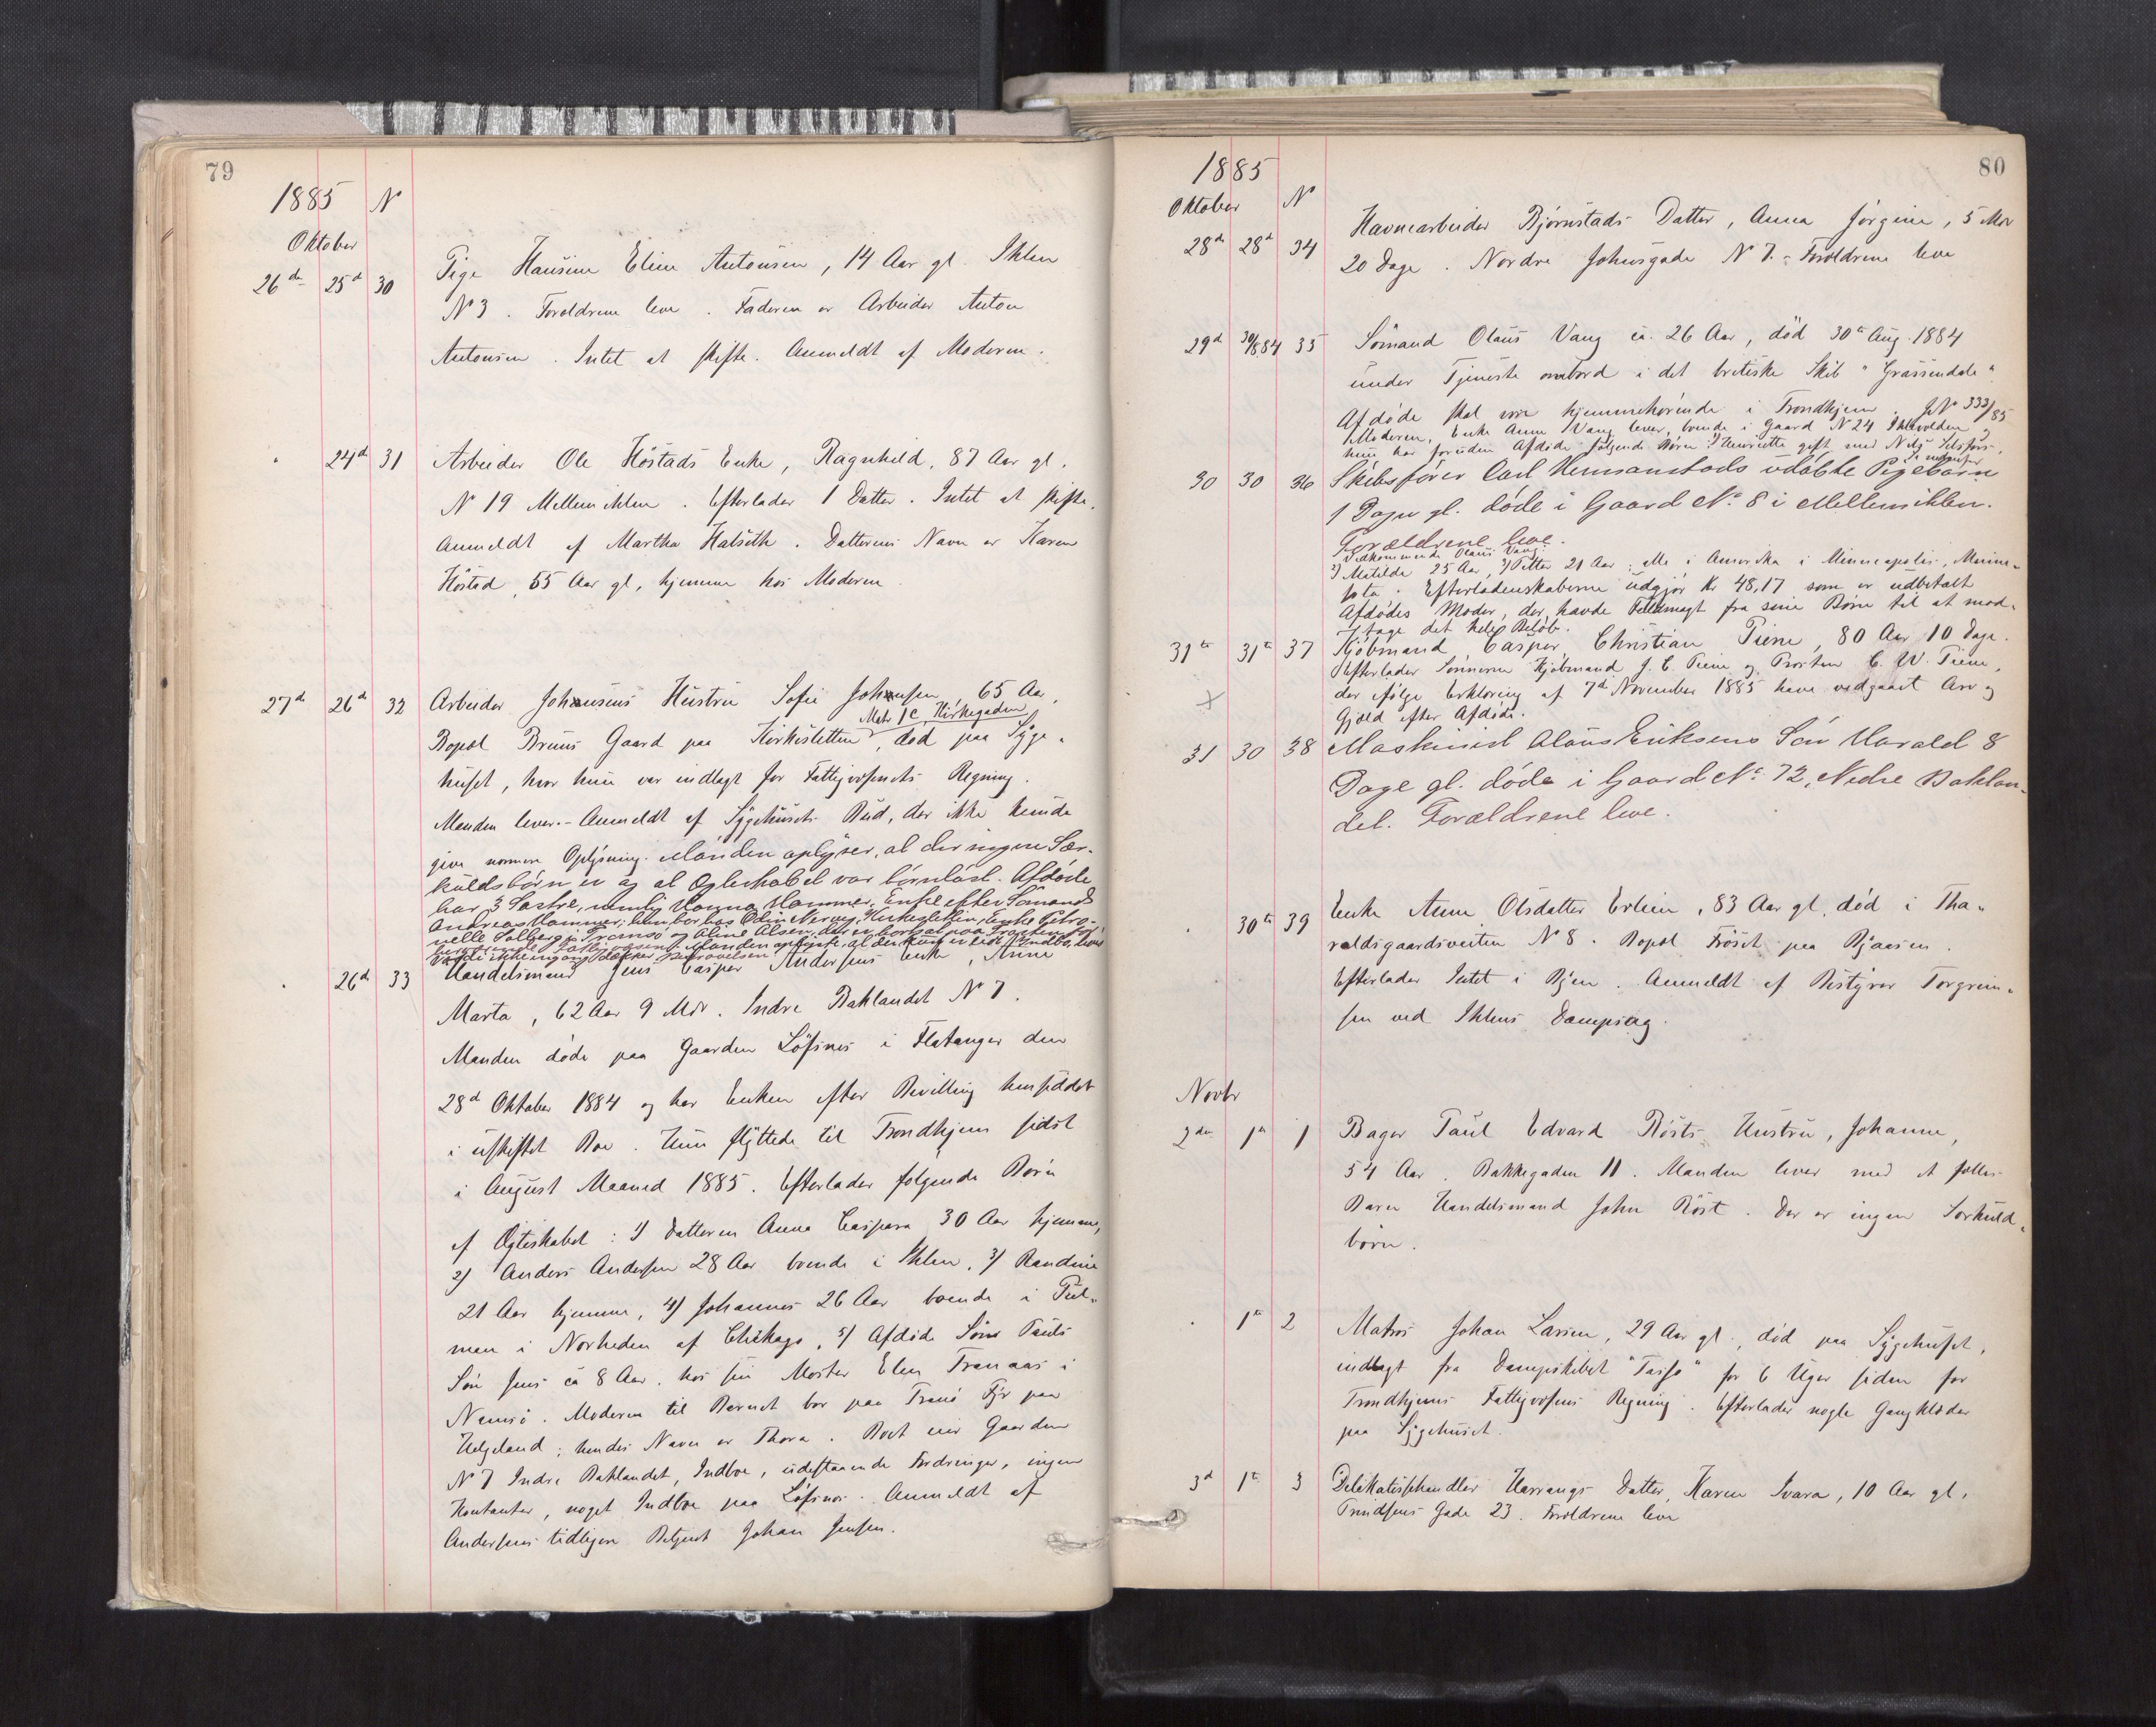 79
1885 N
Oktober
26de 25d 30 Pige Hansine Eline Antonsen, 14 Aar gl. Ihlen
N 3. Forældrene leve. Faderen er Arbeider Anton
Antonsen. Intet at skifte. Anmeldt af Moderen.
" 24d 31 Arbeider Ole Höstads Enke, Ragnhild, 87 Aar gl.
N 19 Mellemihlen. Efterlader 1 Datter. Intet at skifte.
Anmeldt af Martha Halseth. Datterens Navn er Karen
Höstad, 55 Aar gl, hjemme hos Moderen.
27d 26d 32 Arbeider Johansens Hustru Sofie Johansen, 65 Aar,
Matr 1c Kirkegaden
Bopæl Bruns Gaard paa Kirkesletten, död paa Syge-
huset, hvor hun var indlagt for Fattigvæsenets Regning.
Manden lever. - Anmeldt af Sygehusets Bud, der ikke kunde
give nærmere Oplysning. Manden oplyser, at der ingen Sær-
kuldsbörn er og at Ægteskabet var börnlöst. Afdöde
har 3 Söstre, nemlig Hanna Hammer, Enke efter Sömand
Andreas Hammer; hun bor hos Odin Nervig, Kirkesletten, Enke Petro-
nelle Solberg i Tromsö og Aline Olsen, der er bortsat paa
Fattigvæsenet. Manden opgivte, at der kun er lidt Indbo, hvis
Værdi ikke engang dækker Begravelsen
" 26d 33 Handelsmand Jens Casper Andersens Enke, Anne
Marta, 62 Aar 9 Mdr. Indre Baklandet N 7.
Manden döde paa Gaarden Löfsnes i Flatanger den
28d Oktober 1884 og har Enken efter Bevilling hensiddet
i uskiftet Boe. Hun flyttede til Trondhjem sidst
i August Maaned 1885. Efterlader fölgende Börn
af Ægteskabet: 1) Datteren Anna Caspara 30 Aar hjemme,
2) Anders Andersen 28 Aar boende i Ihlen, 3) Randine
21 Aar hjemme, 4) Johannes 26 Aar boende i Pul-
man i Nærheden af Chikago, 5) Afdöde Söns Pauls
Sön Jens ca 8 Aar, hos sin Moster Elen Tranaas i
Namsö. Moderen til Barnet bor paa Tranö Fyr paa
Helgeland; hendes Navn er Thora. Boet eier Gaarden
N 7 Indre Baklandet, Indboe, udestaaende Fordringer, ingen
Kontanter, noget Indboe paa Löfsnes. Anmeldt af
Andersens tidligere Betjent Johan Jensen.
80
1885
Oktober N
28de 28d 34 Havnearbeider Björnstads Datter, Anna Jörgine, 5 Mdr
20 Dage. Nordre Johnsgade N 7. - Forældrene leve
29d 30/8 84 35 Sömand Olaus Vang ca. 26 Aar, död 30te Aug. 1884
under Tjeneste ombord i det britiske Skib "Grassendale"
Afdöde skal være hjemmehörende i Trondhjem. JN 333/85
Moderen, Enke Anne Vang lever, boende i Gaard N 24 Ihlevolden og
hun har foruden Afdöde fölgende Börn: 1) Henriette gift med Nils
30 30 36 Skibsförer Carl Hermanstads udöbte Pigebarn
1 Dage gl. döde i Gaard No 8 i Mellemihlen.
Forældrene leve.
Vedkommende Olaus Vang:
2) Matilde 25 Aar, 3) Petter 21 Aar: alle i Amerika i Minneapolis, Minne-
sota. Efterladenskaberne udgjör Kr 48,17 som er udbetalt
Afdödes Moder, der havde Fuldmagt fra sine Börn til at mod-
tage det hele Belöb.
31te 31te 37 Kjöbmand Casper Christian Piene, 80 Aar 10 Dage.
Efterlader Sönnerne Kjöbmand J. C. Piene og Provsten C. W. Piene,
x der ifölge Erklæring af 7de November 1885 have vedgaaet Arv og
Gjæld efter Afdöde.
31 30 38 Maskinist Olaus Eriksens Sön Harald 8
Dage gl. döde i Gaard No 72, Nedre Baklan-
det. Forældrene leve.
" 30te 39 Enke Anne Olsdatter Erlien, 83 Aar gl, död i Tha-
raldsgaardsveiten N 8. Bopæl Fröset paa Bjaasen.
Efterlader Intet i Byen. Anmeldt af Bestyrer Torgrim-
sen ved Ihlens Dampsag.
Novbr
2den 1te 1 Bager Paul Edvard Rösts Hustru, Johanne,
54 Aar. Bakkegaden 11. Manden lever med et fælles
Barn Handelsmand John Röst. Der er ingen Særkuld-
börn.
" 1te 2 Matros Johan Larsen, 29 Aar gl, död paa Sygehuset,
indlagt fra Dampskibet "Tasso" for 6 Uger siden for
Trondhjems Fattigvæsens Regning. Efterlader nogle Gangklæder
paa Sygehuset.
3d 1te 3 Delikatessehandler Harrangs Datter Karen Ivara, 10 Aar gl,
Frindsens Gade 23. Forældrene leve